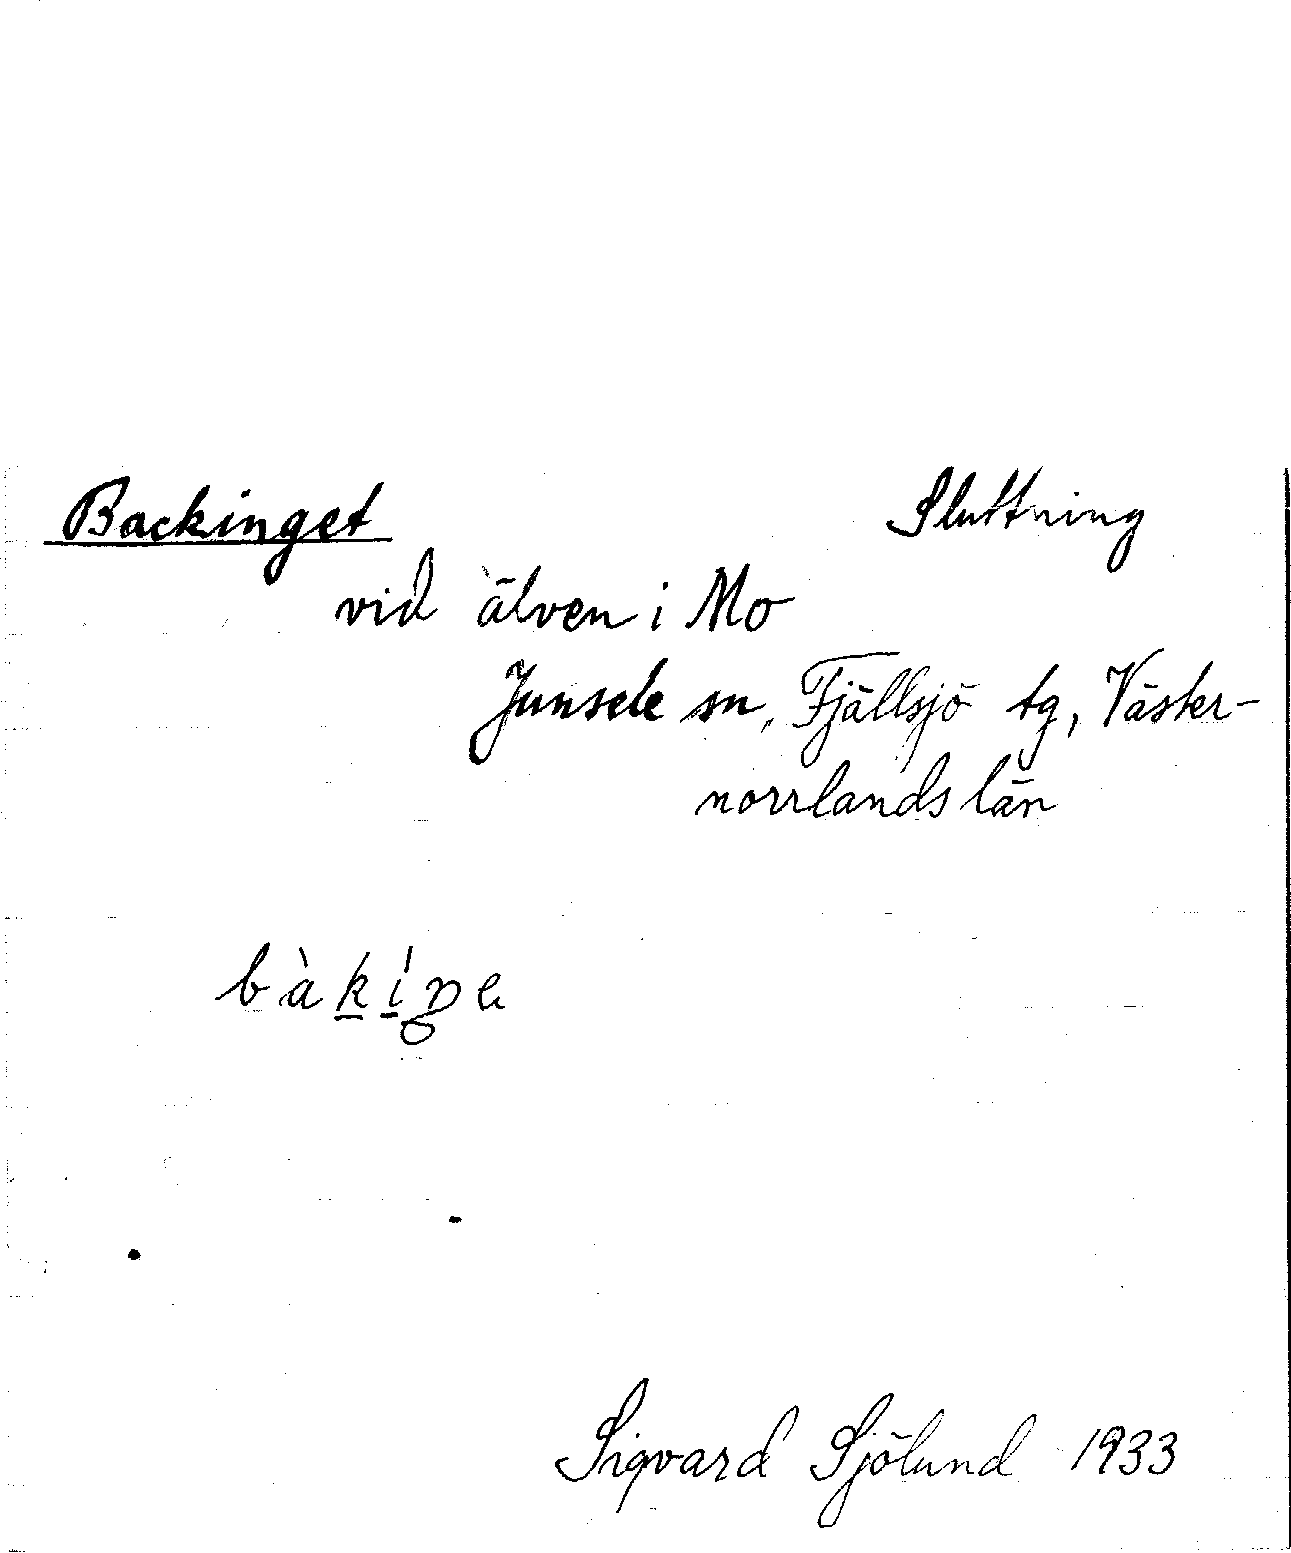 Backinget Sluttning
vid älven i Mo
Junsele sn, Fjällsjö tg, Väster-
norrlands län
bàkíŋe
Sigvard Sjölund 1933